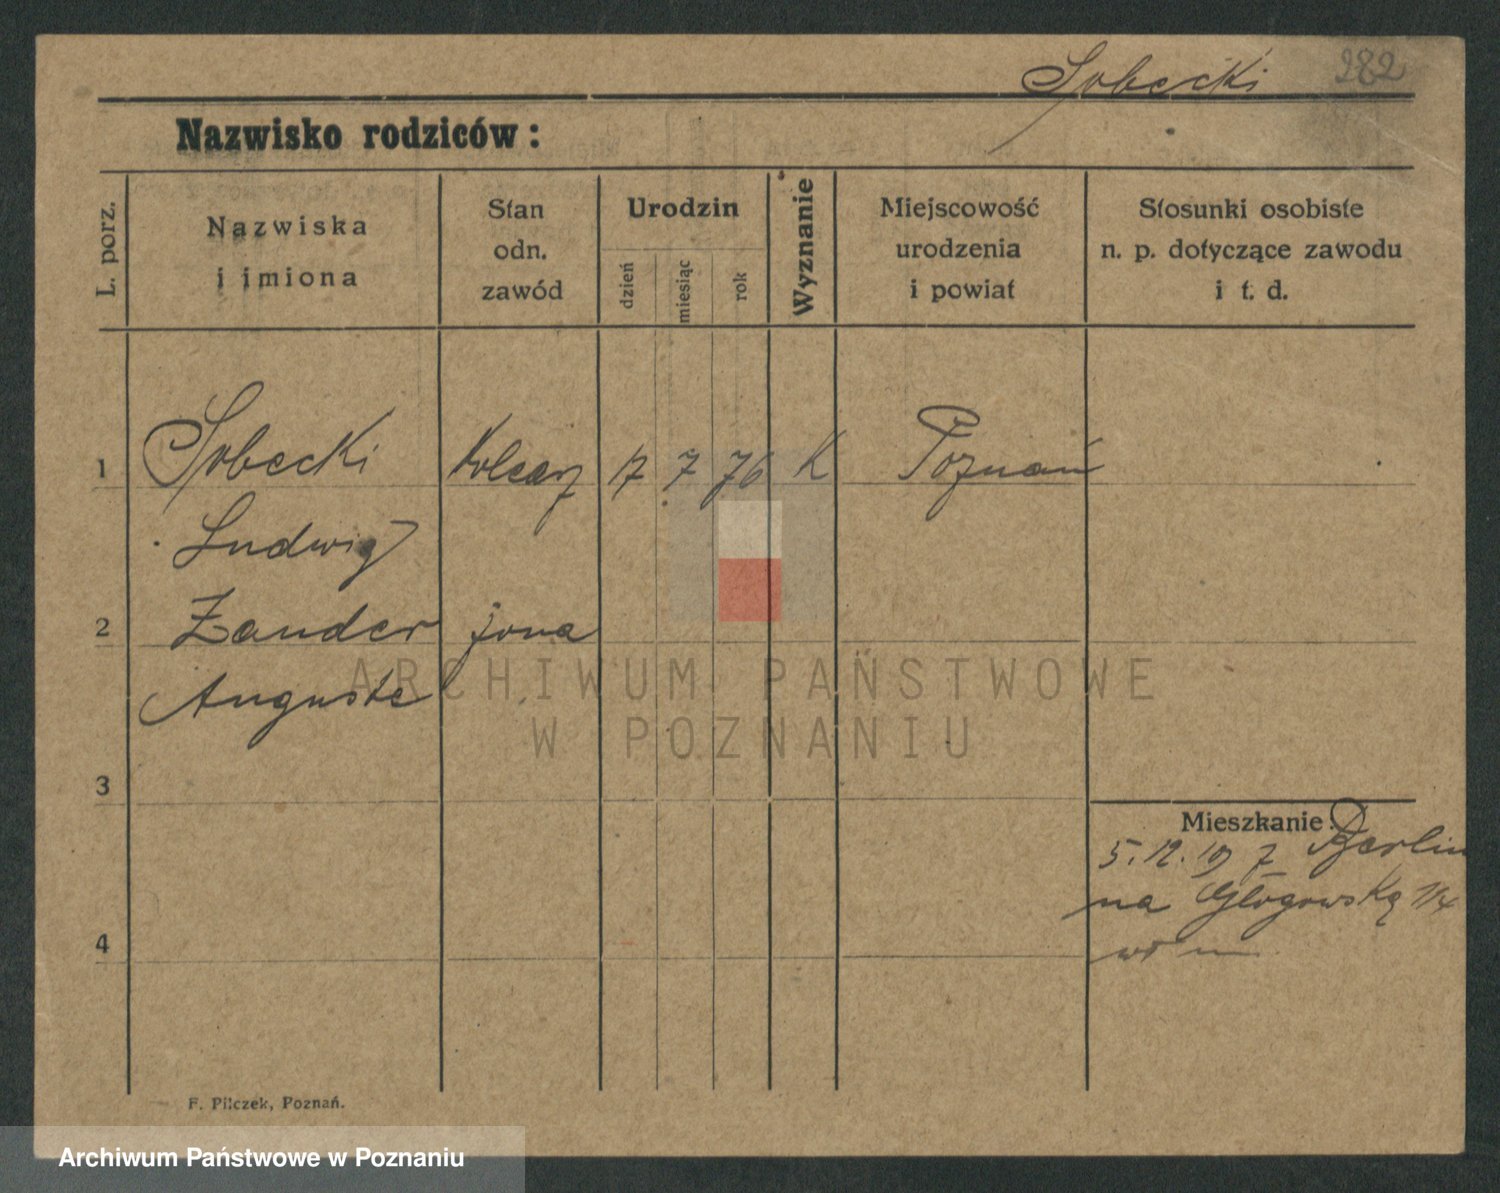 Sobecki 282
Nazwisko rodziców :
L. porz.
Nazwiska
i imiona
Stan
odn.
zawód
Urodzin
dzień
miesiąc
rok
Wyznanie
Miejscowość
urodzenia
i powiat
Stosunki osobiste
n. p. dotyczące zawodu
i t. d.
1 Sobecki 17 7 76 K Poznań
Ludwig
2 Zander żona
Auguste
ARCHIWUM PAŃSTWOWE
W POZNANIU
3
Mieszkanie:
5.12.19 z Berlin
na Głogowską
4
F. Pilczek, Poznań.
Archiwum Państwowe w Poznaniu